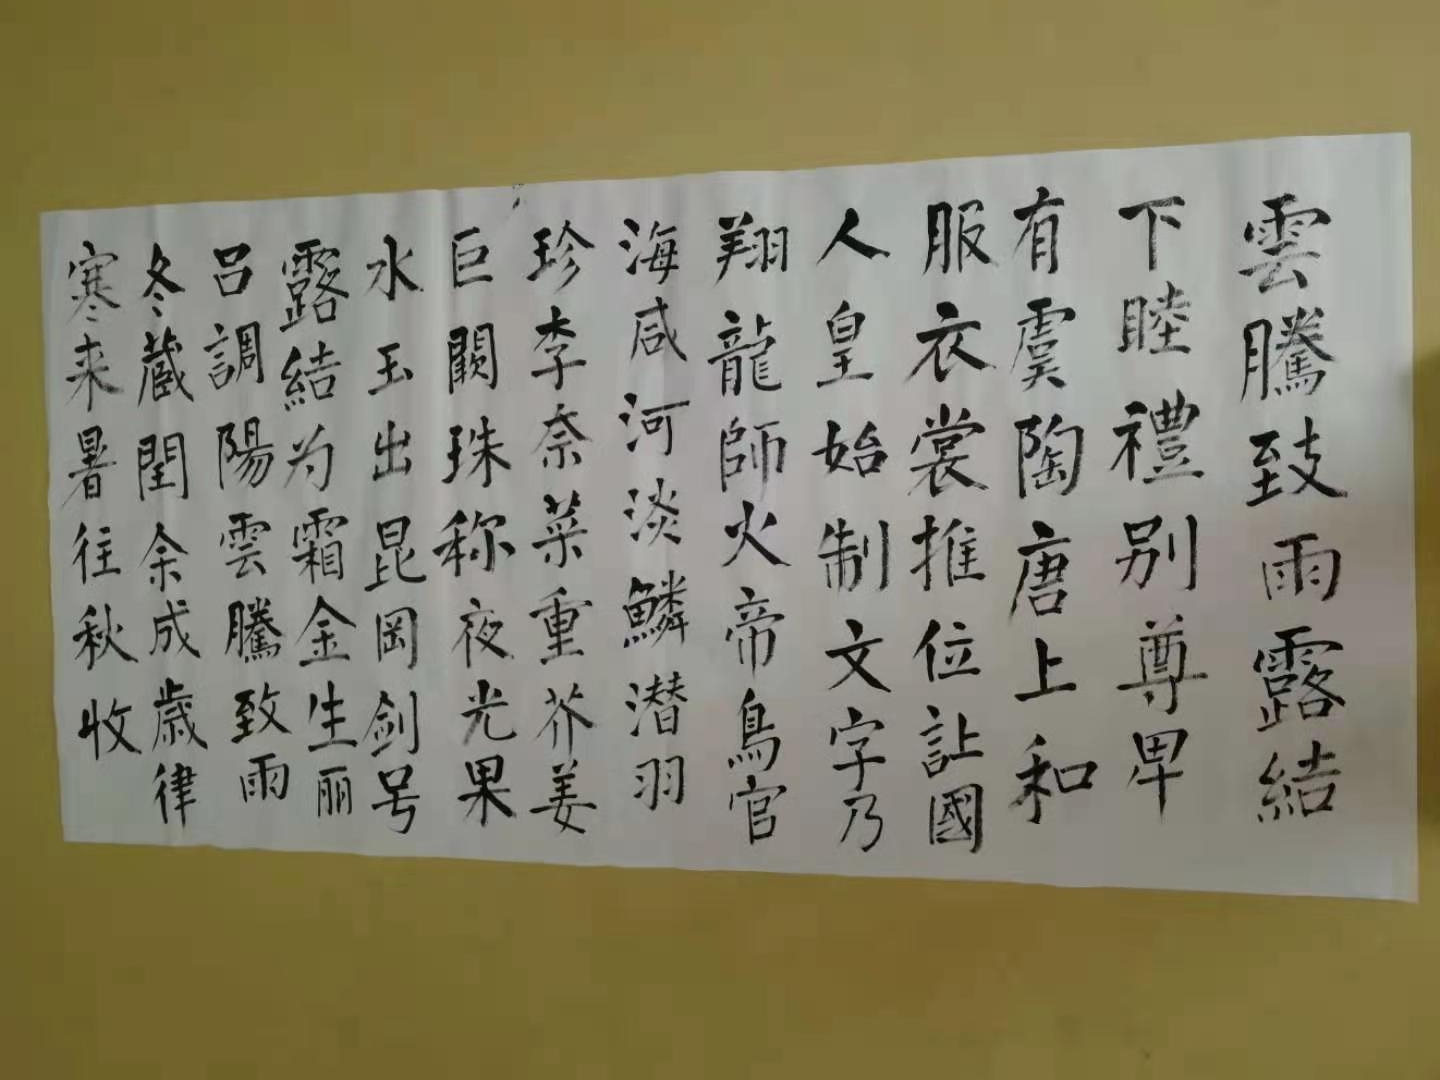 寒来暑往秋收
冬藏閏余成歲律
吕調陽雲騰致雨
露結为霜金生丽
水玉出昆岡剑号
巨闕珠称夜光果
珍李奈菜重芥姜
海咸河淡鱗潜羽
翔龍師火帝鳥官
人皇始制文字乃
服衣裳推位让國
有虞陶唐上和
下睦禮别尊卑
雲騰致雨露結